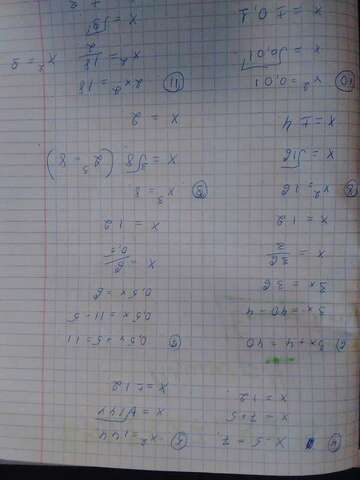 4 x - 5 = 7
x = 7 + 5
x = 12
5 x² = 144
x = √144
x = ± 12
6) 3x + 4 = 40
3x = 40 - 4
3x = 36
x = 36/3
x = 12
7 0,5x + 5 = 11
0,5x = 11 - 5
0,5x = 6
x = 6/0,5
x = 12
8 x² = 16
x = √16
x = ± 4
9 x³ = 8
x = ³√8 (2³ = 8)
x = 2
10 x² = 0,01
x = √0,01
x = ± 0,1
11 2x² = 18
x² = 18/2 x² = 9
x = √9